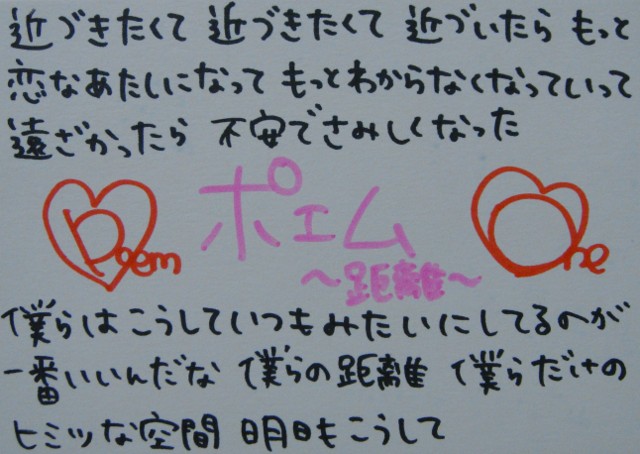 近づきたくて 近づきたくて 近づいたら もっと
恋なあたしになって もっとわからなくなっていって
遠ざかったら 不安でさみしくなった
Poem ポエム One
〜距離〜
僕らはこうしていつもみたいにしてるのが
一番いいんだな 僕らの距離 僕らだけの
ヒミツな空間 明日もこうして